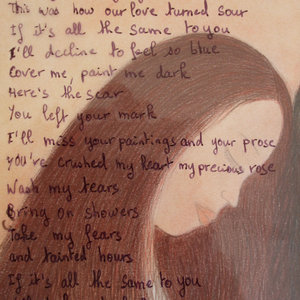 This was how our love turned sour
If it's all the same to you
I'll decline to feel so blue
Cover me, paint me dark
Here's the scar
You left your mark
I'll miss your paintings and your prose
you've crushed my heart my precious rose
Wash my tears
Bring on showers
Take my fears
and tainted hours
If it's all the same to you